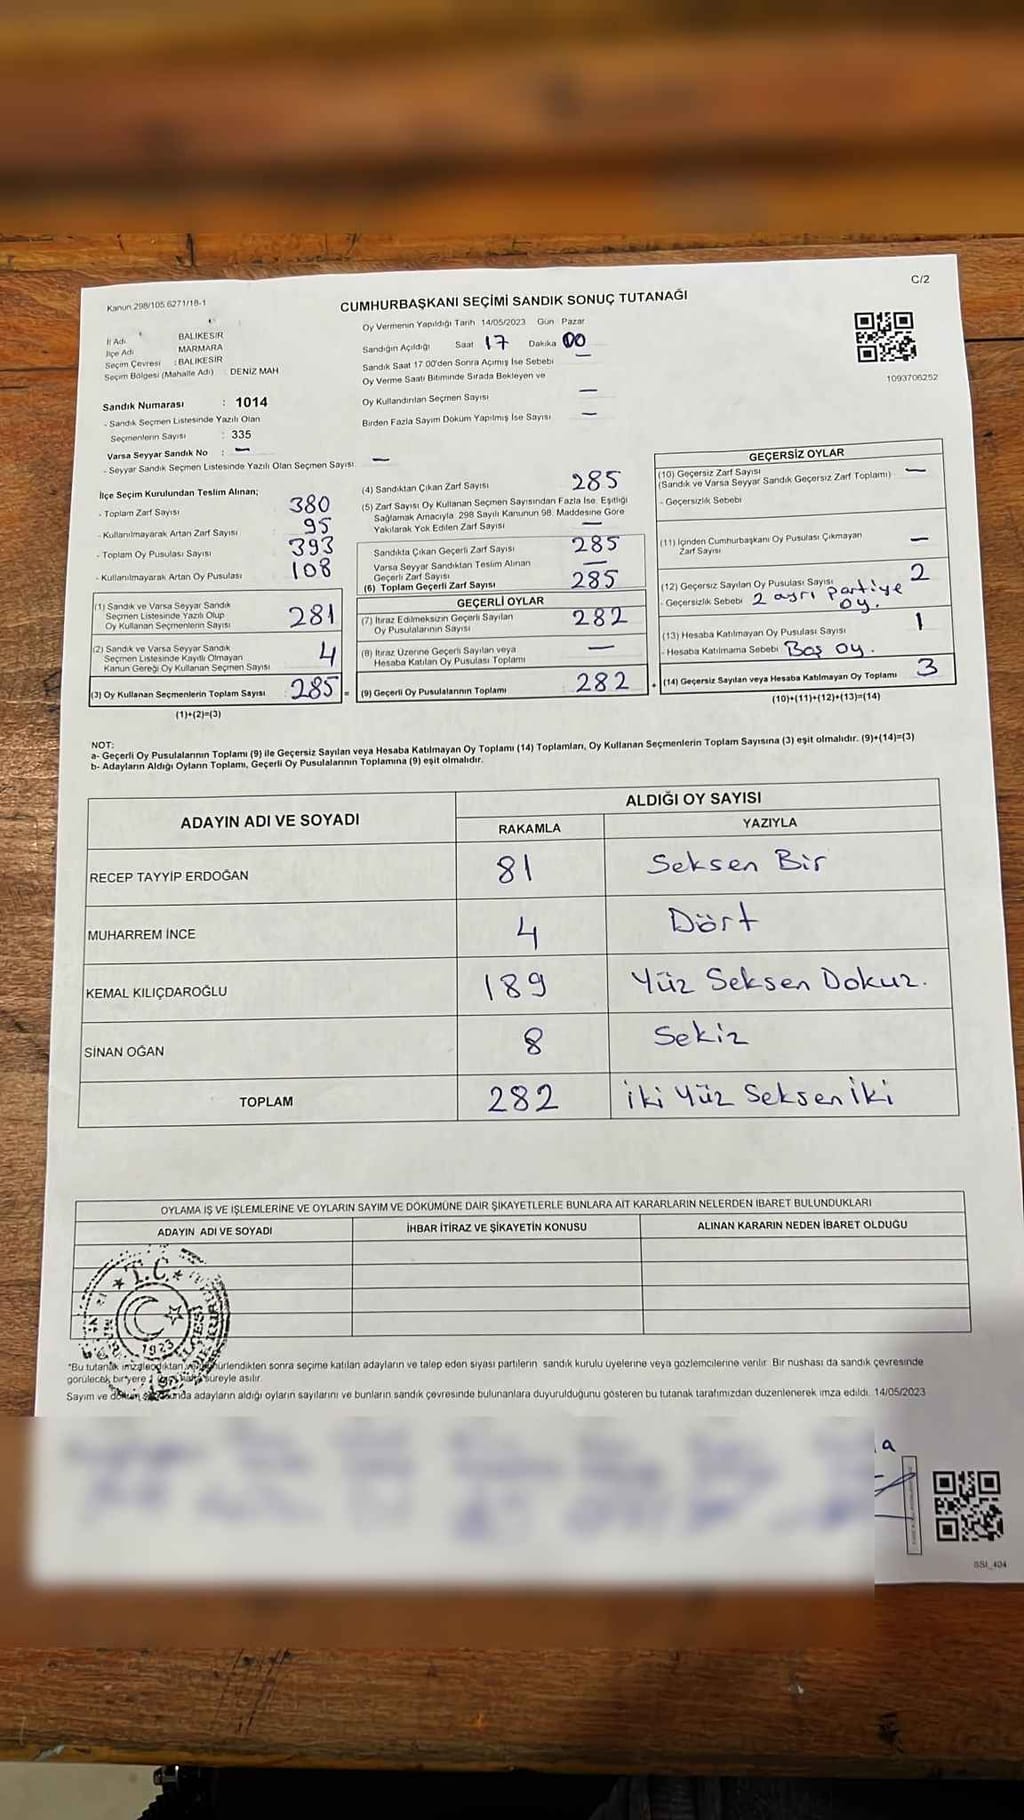 Kanun 298/105 6271/18-1
C/2
CUMHURBAŞKANI SEÇİMİ SANDIK SONUÇ TUTANAĞI
İl Adı : BALIKESİR
İlçe Adı MARMARA
Seçim Çevresi : BALIKESİR
Seçim Bölgesi (Mahalle Adı) : DENİZ MAH
Sandık Numarası : 1014
- Sandık Seçmen Listesinde Yazılı Olan
Seçmenlerin Sayısı : 335
Varsa Seyyar Sandık No : —
- Seyyar Sandık Seçmen Listesinde Yazılı Olan Seçmen Sayısı —
Oy Vermenin Yapıldığı Tarih 14/05/2023 Gün Pazar
Sandığın Açıldığı Saat 17 Dakika 00
Sandık Saat 17 00'den Sonra Açımış İse Sebebi —
Oy Verme Saati Bitiminde Sırada Bekleyen ve
Oy Kullandırılan Seçmen Sayısı —
Birden Fazla Sayım Döküm Yapılmış İse Sayısı —
1093706252
İlçe Seçim Kurulundan Teslim Alınan;
- Toplam Zarf Sayısı 380
- Kullanılmayarak Artan Zarf Sayısı 95
- Toplam Oy Pusulası Sayısı 393
- Kullanılmayarak Artan Oy Pusulası 108
(1) Sandık ve Varsa Seyyar Sandık
Seçmen Listesinde Yazılı Olup
Oy Kullanan Seçmenlerin Sayısı 281
(2) Sandık ve Varsa Seyyar Sandık
Seçmen Listesinde Kayıtlı Olmayan
Kanun Gereği Oy Kullanan Seçmen Sayısı 4
(3) Oy Kullanan Seçmenlerin Toplam Sayısı 285 =
(1)+(2)=(3)
(4) Sandıktan Çıkan Zarf Sayısı 285
(5) Zarf Sayısı Oy Kullanan Seçmen Sayısından Fazla İse, Eşitliği
Sağlamak Amacıyla 298 Sayılı Kanunun 98. Maddesine Göre
Yakılarak Yok Edilen Zarf Sayısı —
Sandıkta Çıkan Geçerli Zarf Sayısı 285
Varsa Seyyar Sandıktan Teslim Alınan
Geçerli Zarf Sayısı —
(6) Toplam Geçerli Zarf Sayısı 285
GEÇERLİ OYLAR
(7) İtiraz Edilmeksizin Geçerli Sayılan
Oy Pusulalarının Sayısı 282
(8) İtiraz Üzerine Geçerli Sayılan veya
Hesaba Katılan Oy Pusulası Toplamı —
(9) Geçerli Oy Pusulalarının Toplamı 282 +
GEÇERSİZ OYLAR
(10) Geçersiz Zarf Sayısı —
(Sandık ve Varsa Seyyar Sandık Geçersiz Zarf Toplamı)
- Geçersizlik Sebebi
(11) İçinden Cumhurbaşkanı Oy Pusulası Çıkmayan
Zarf Sayısı —
(12) Geçersiz Sayılan Oy Pusulası Sayısı 2
- Geçersizlik Sebebi 2 ayrı partiye
oy.
(13) Hesaba Katılmayan Oy Pusulası Sayısı 1
- Hesaba Katılmama Sebebi Boş oy.
(14) Geçersiz Sayılan veya Hesaba Katılmayan Oy Toplamı 3
(10)+(11)+(12)+(13)=(14)
NOT:
a- Geçerli Oy Pusulalarının Toplamı (9) ile Geçersiz Sayılan veya Hesaba Katılmayan Oy Toplamı (14) Toplamları, Oy Kullanan Seçmenlerin Toplam Sayısına (3) eşit olmalıdır. (9)+(14)=(3)
b- Adayların Aldığı Oyların Toplamı, Geçerli Oy Pusulalarının Toplamına (9) eşit olmalıdır.
ADAYIN ADI VE SOYADI
ALDIĞI OY SAYISI
RAKAMLA YAZIYLA
RECEP TAYYİP ERDOĞAN 81 Seksen Bir
MUHARREM İNCE 4 Dört
KEMAL KILIÇDAROĞLU 189 Yüz Seksen Dokuz.
SİNAN OĞAN 8 Sekiz
TOPLAM 282 İki Yüz Seksen İki
OYLAMA İŞ VE İŞLEMLERİNE VE OYLARIN SAYIM VE DÖKÜMÜNE DAİR ŞİKAYETLERLE BUNLARA AİT KARARLARIN NELERDEN İBARET BULUNDUKLARI
ADAYIN ADI VE SOYADI İHBAR İTİRAZ VE ŞİKAYETİN KONUSU ALINAN KARARIN NEDEN İBARET OLDUĞU
T.C.
1923
"Bu tutanak imzalandıktan mühürlendikten sonra seçime katılan adayların ve talep eden siyasi partilerin sandık kurulu üyelerine veya gözlemcilerine verilir. Bir nüshası da sandık çevresinde
görülecek bir yere süreyle asılır.
Sayım ve döküm adayların aldığı oyların sayılarını ve bunların sandık çevresinde bulunanlara duyurulduğunu gösteren bu tutanak tarafımızdan düzenlenerek imza edildi. 14/05/2023
a
SSI_404